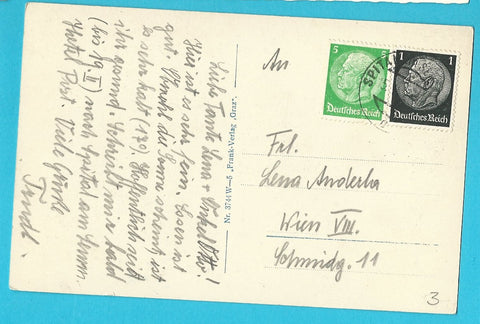 Liebe Tante Lena + Onkel Otto!
Hier ist es sehr schön. Essen ist
gut. Obwohl die Sonne scheint ist
es sehr kalt (18°). Hoffentlich seit
ihr gesund. Schreibt mir bald
(bis 19.II) nach Spital am Semm.
Hotel Post. Viele Grüße
Trudl.
Nr. 3744 W—5 „Frank-Verlag „Graz".
An
5 5
Deutsches Reich
1 1
Deutsches Reich
SPITAL
Frl.
Lena Anderha
Wien VIII.
Schmidg. 11
3